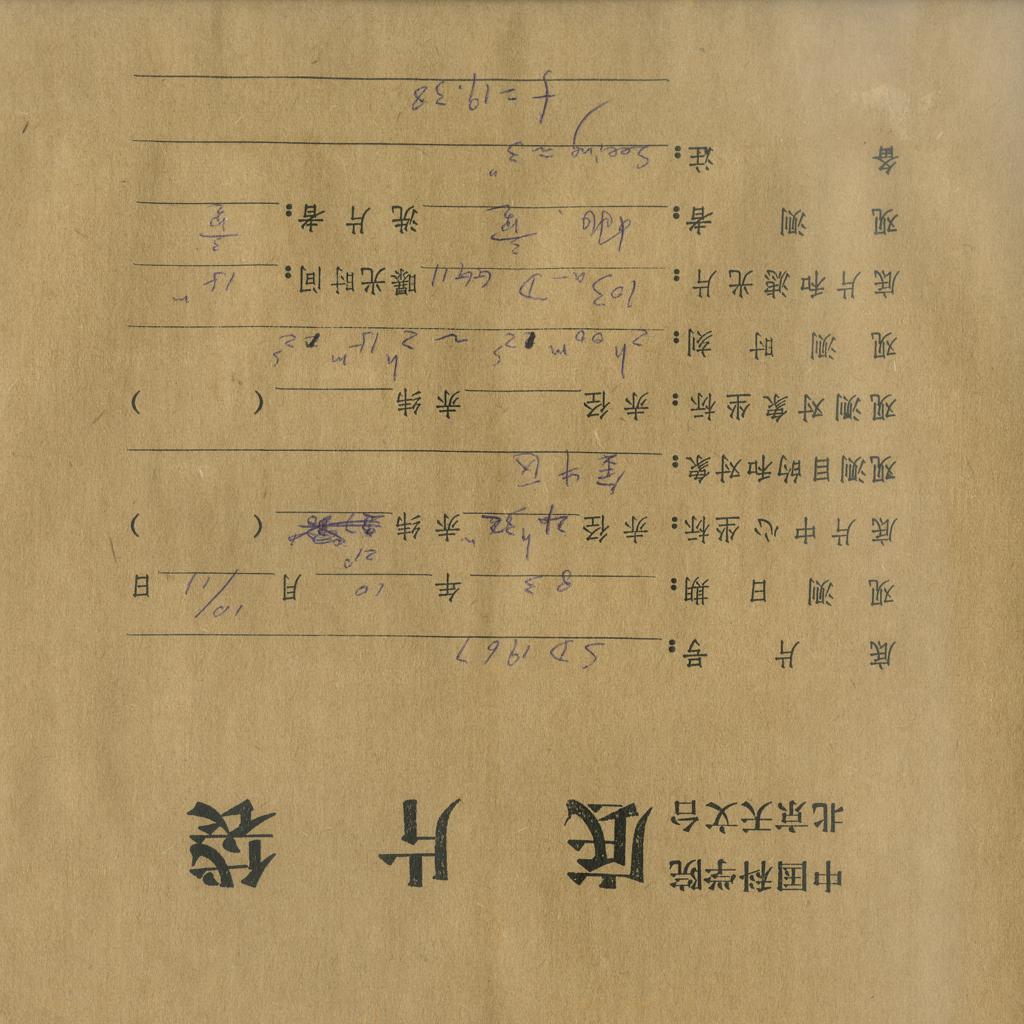 中国科学院
北京天文台
底片袋
底片号：SD 1967
观测日期：83年10月10/11日
底片中心坐标：赤径 2h 32m 赤纬 21° ( )
观测目的和对象：
观测对象坐标：赤径 赤纬 ( )
观测时刻：2h 00m 02s ~ 2h 15m 02s
底片和滤光片：103a-D GG11 曝光时间：15m
观测者： 洗片者：
备注：Seeing ≈ 3"
f = 19.38